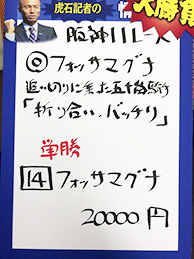 虎石記者の
大勝負
阪神11レース
◎フォッサマグナ
追い切りに乗った五十嵐騎手
「折り合い、バッチリ」
単勝
14 フォッサマグナ
20000円